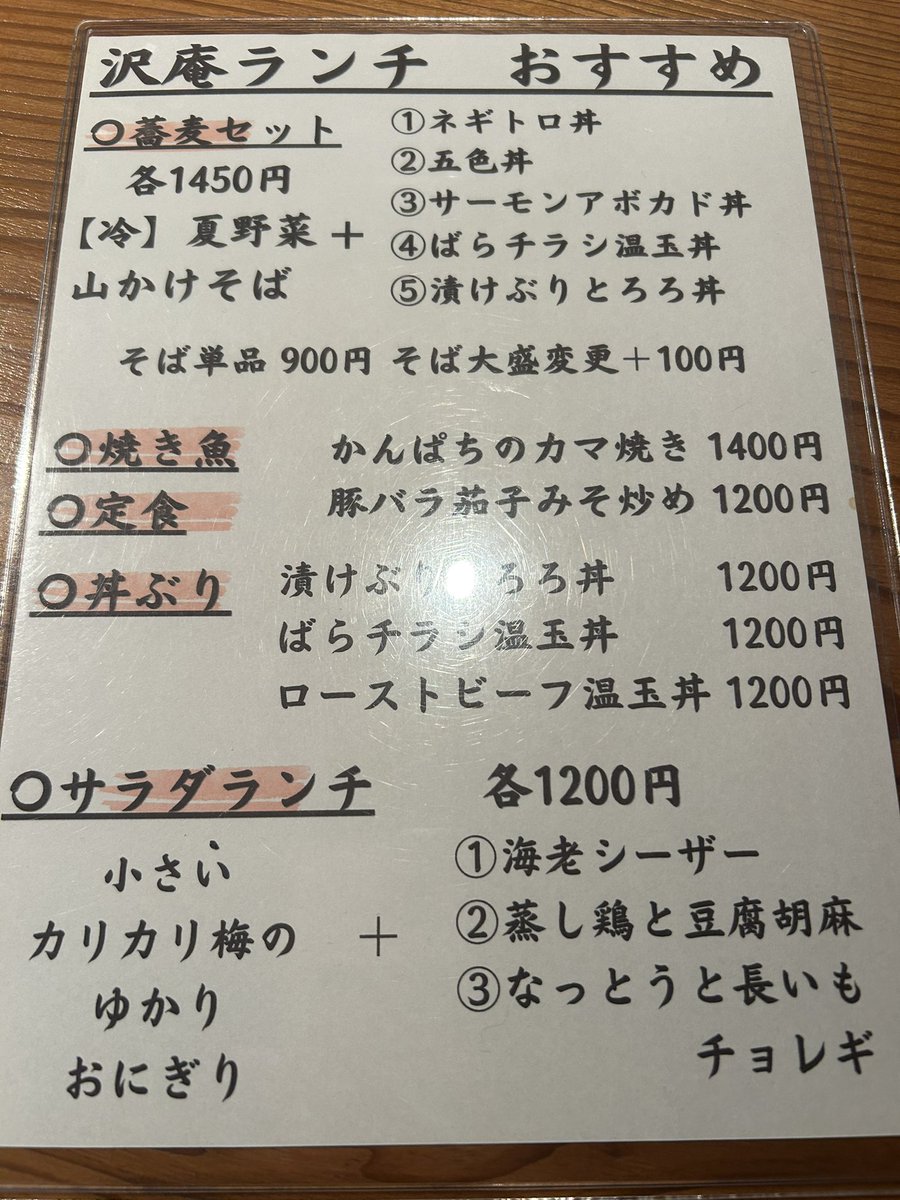 沢庵ランチ　おすすめ
〇蕎麦セット
各1450円
【冷】夏野菜
山かけそば
＋
①ネギトロ丼
②五色丼
③サーモンアボカド丼
④ばらチラシ温玉丼
⑤漬けぶりとろろ丼
そば単品 900円 そば大盛変更＋100円
〇焼き魚　かんぱちのカマ焼き 1400円
〇定食　豚バラ茄子みそ炒め 1200円
〇丼ぶり　漬けぶりとろろ丼 1200円
ばらチラシ温玉丼 1200円
ローストビーフ温玉丼 1200円
〇サラダランチ　各1200円
小さい
カリカリ梅の
ゆかり
おにぎり
＋
①海老シーザー
②蒸し鶏と豆腐胡麻
③なっとうと長いも
チョレギ